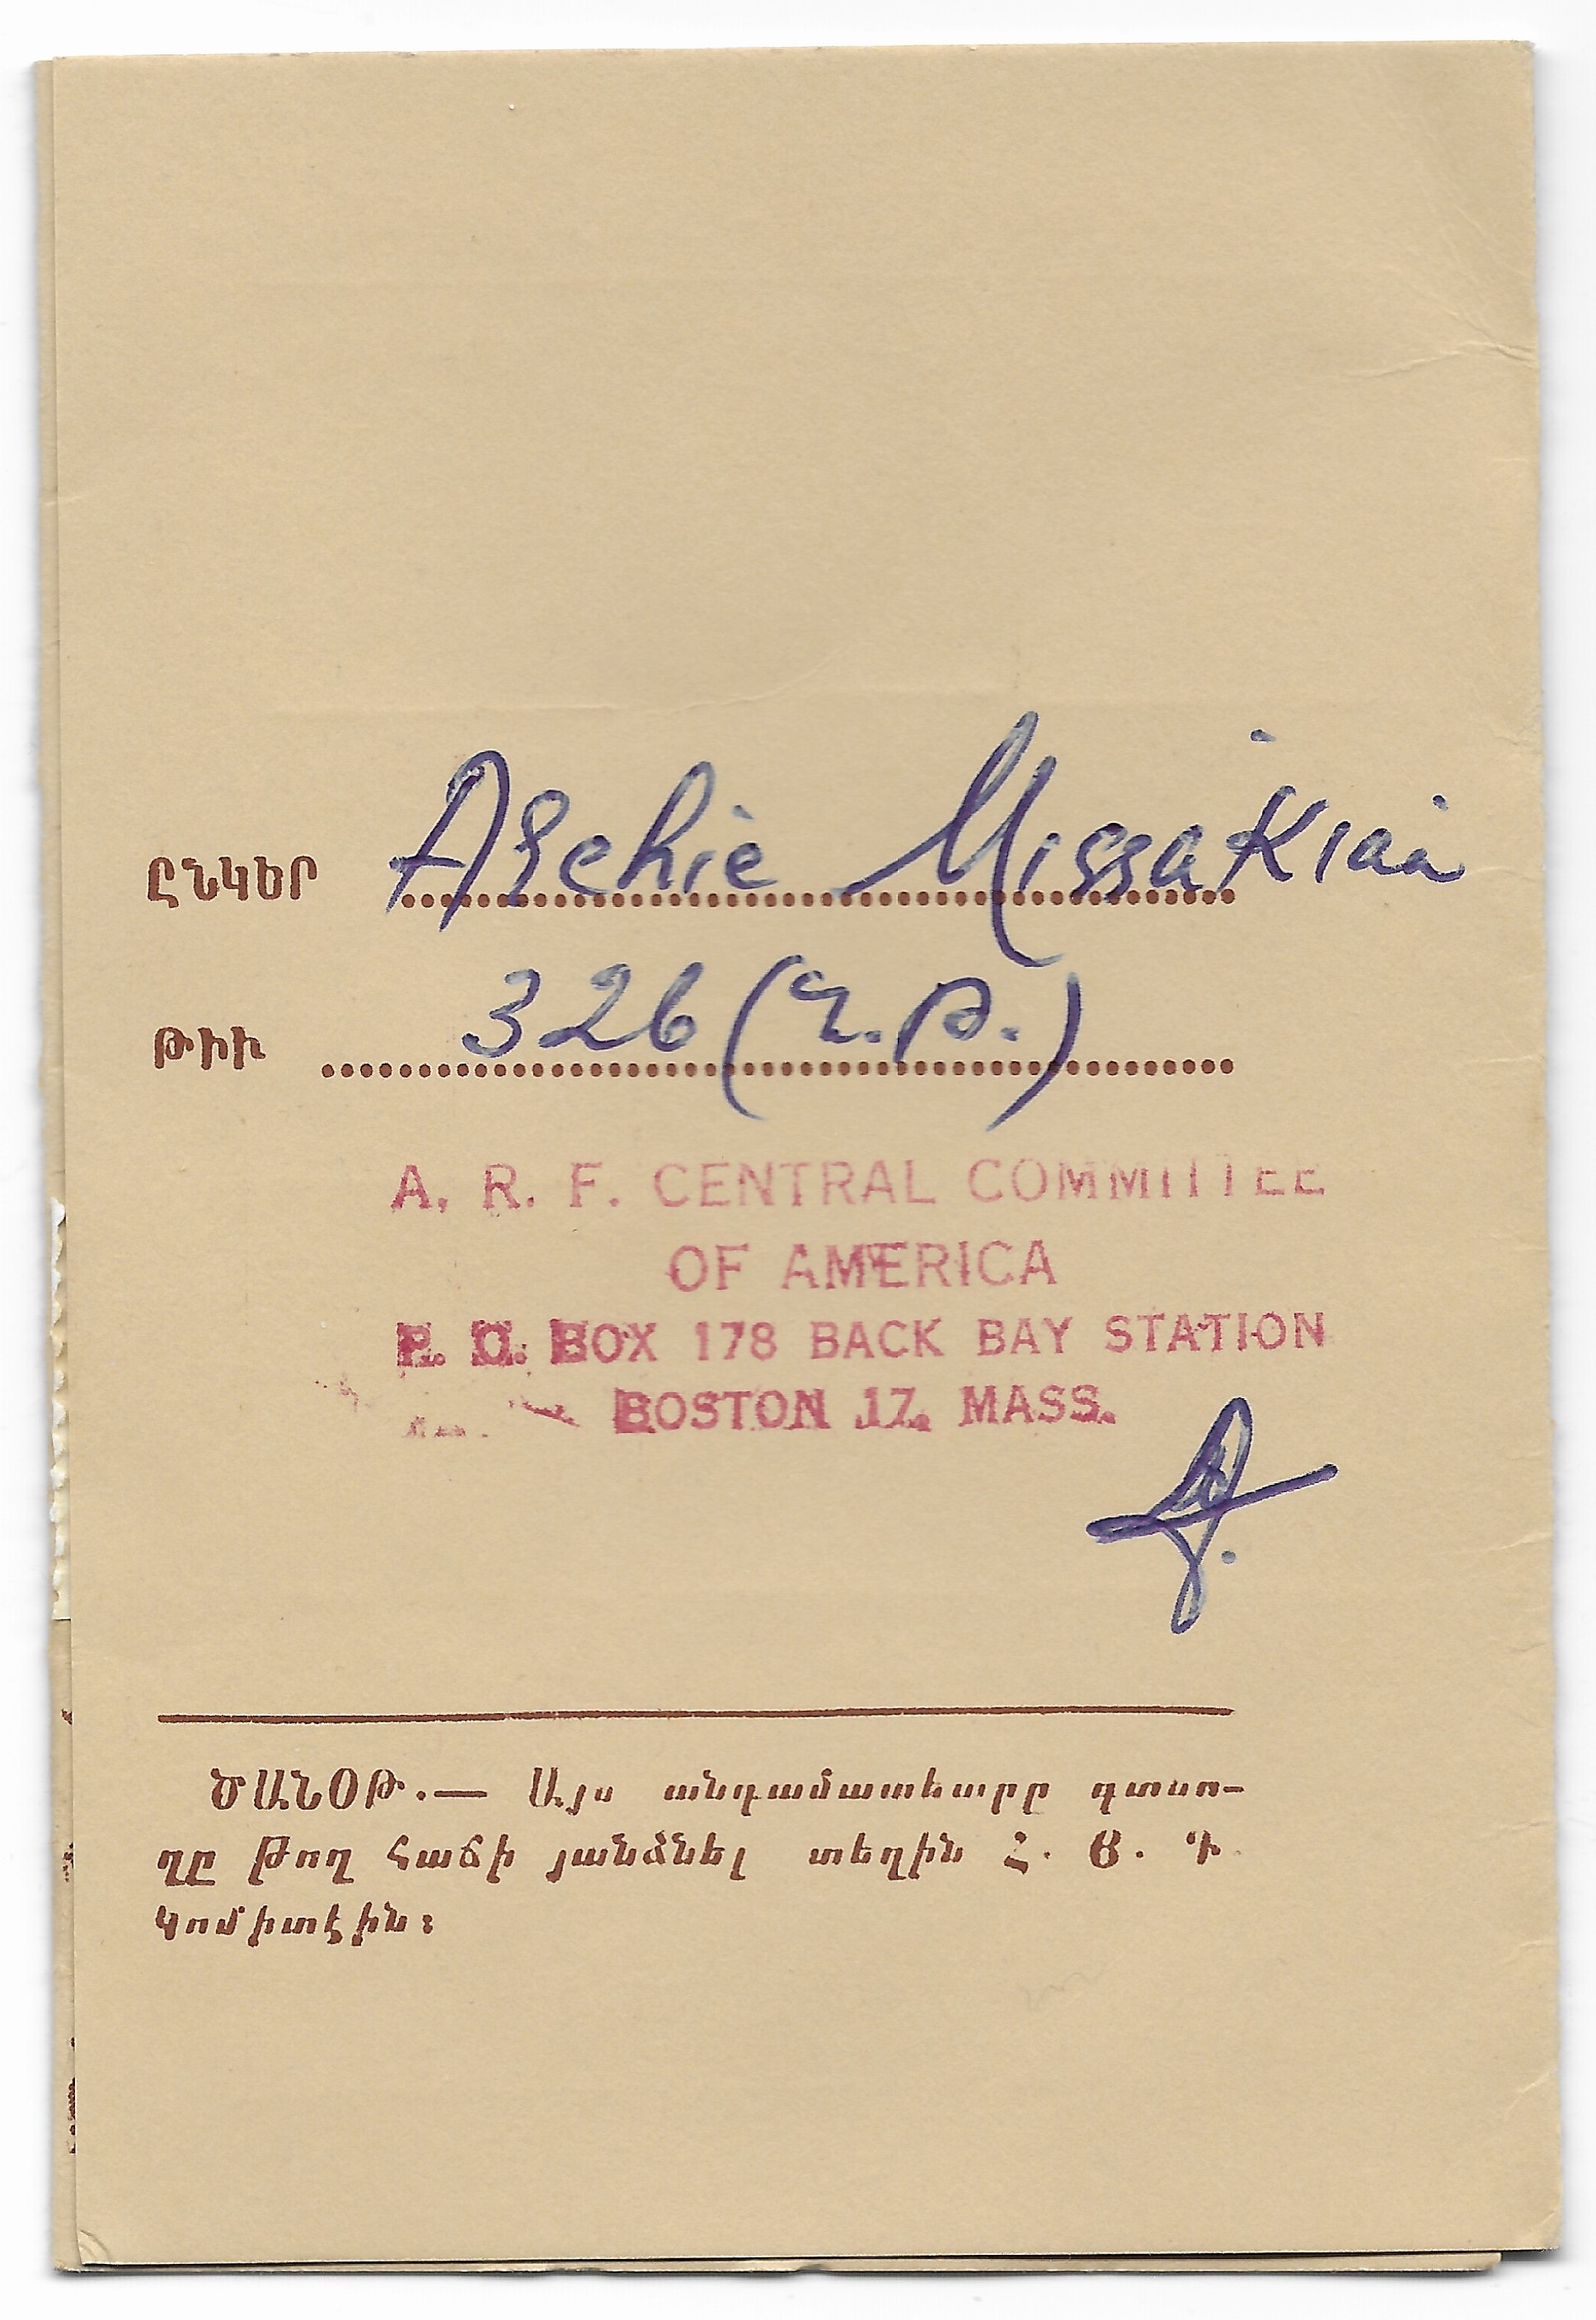 ԸՆԿԵՐ Archie Missakian
ԹԻԻ 326 (Ղ.Թ.)
A. R. F. CENTRAL COMMITTEE
OF AMERICA
P. O. BOX 178 BACK BAY STATION
BOSTON 17, MASS.
ԾԱՆՕԹ.— Այս անդամատետրը գտնո-
ղը թող հաճի յանձնել տեղին Հ. Յ. Դ.
Կոմիտէին։